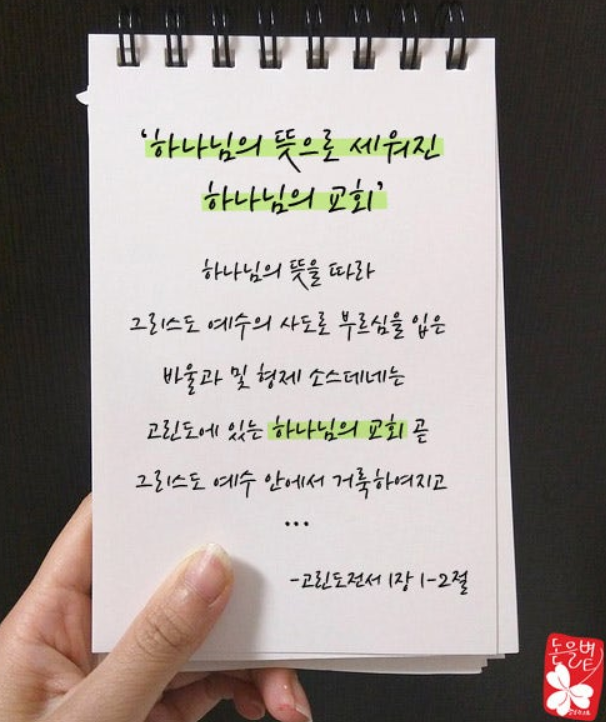 '하나님의 뜻으로 세워진
하나님의 교회'
하나님의 뜻을 따라
그리스도 예수의 사도로 부르심을 입은
바울과 및 형제 소스데네는
고린도에 있는 하나님의 교회 곧
그리스도 예수 안에서 거룩하여지고
...
-고린도전서 1장 1-2절
돈을벼